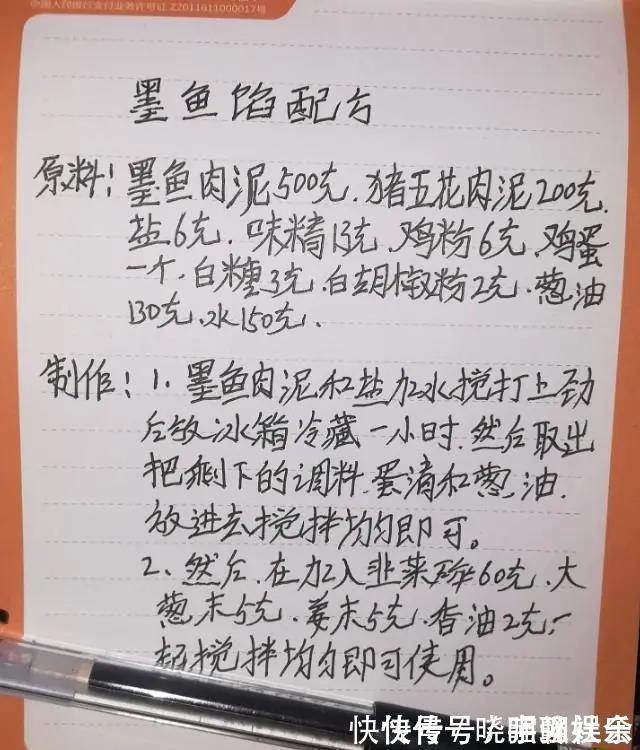 中国人民银行支付业务许可证 Z2011611000017号
墨鱼馅配方
原料：墨鱼肉泥500克、猪五花肉泥200克、
盐6克、味精13克、鸡粉6克、鸡蛋
一个、白糖3克、白胡椒粉2克、葱油
130克、水150克、
制作：1、墨鱼肉泥和盐加水搅打上劲
后放冰箱冷藏一小时、然后取出
把剩下的调料、蛋清和葱油、
放进去搅拌均匀即可。
2、然后、在加入韭菜碎60克、大
葱末5克、姜末5克、香油2克、一
起搅拌均匀即可使用。
快传号